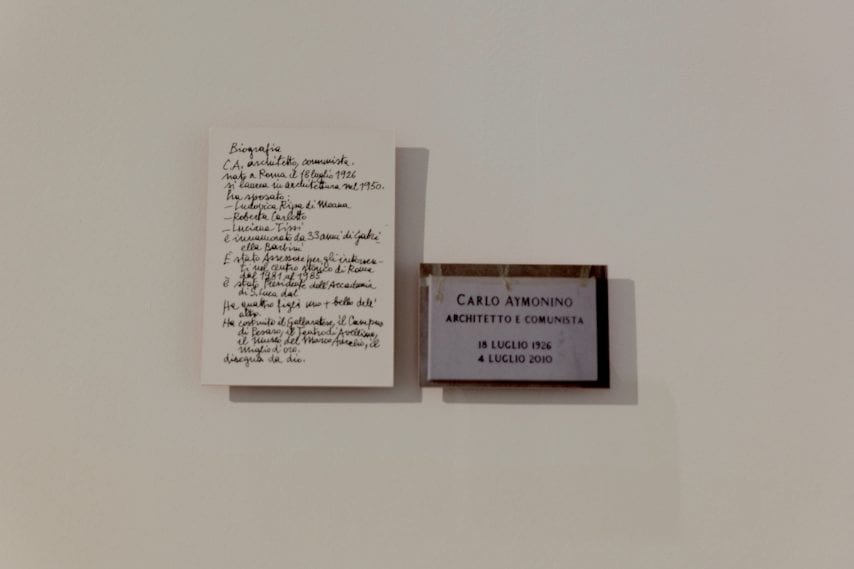 Biografia
C.A. architetto, comunista.
nato a Roma il 18 luglio 1926
si laurea in architettura nel 1950.
ha sposato:
– Ludovica Ripa di Meana
– Roberta Carlotto
– Luciana Tissi
è innamorato da 33 anni di Gabri
ella Barbini
È stato Assessore per gli interven-
ti nel centro storico di Roma
dal 1981 al 1985
è stato Presidente dell'Accademia
di S. Luca dal
Ha quattro figli uno + bello dell'
altro.
Ha costruito il Gallaratese, il Campus
di Pesaro, il Teatro di Avellino,
il museo del Marco Aurelio, il
miglio d'oro.
disegna da dio.
CARLO AYMONINO
ARCHITETTO E COMUNISTA
18 LUGLIO 1926
4 LUGLIO 2010